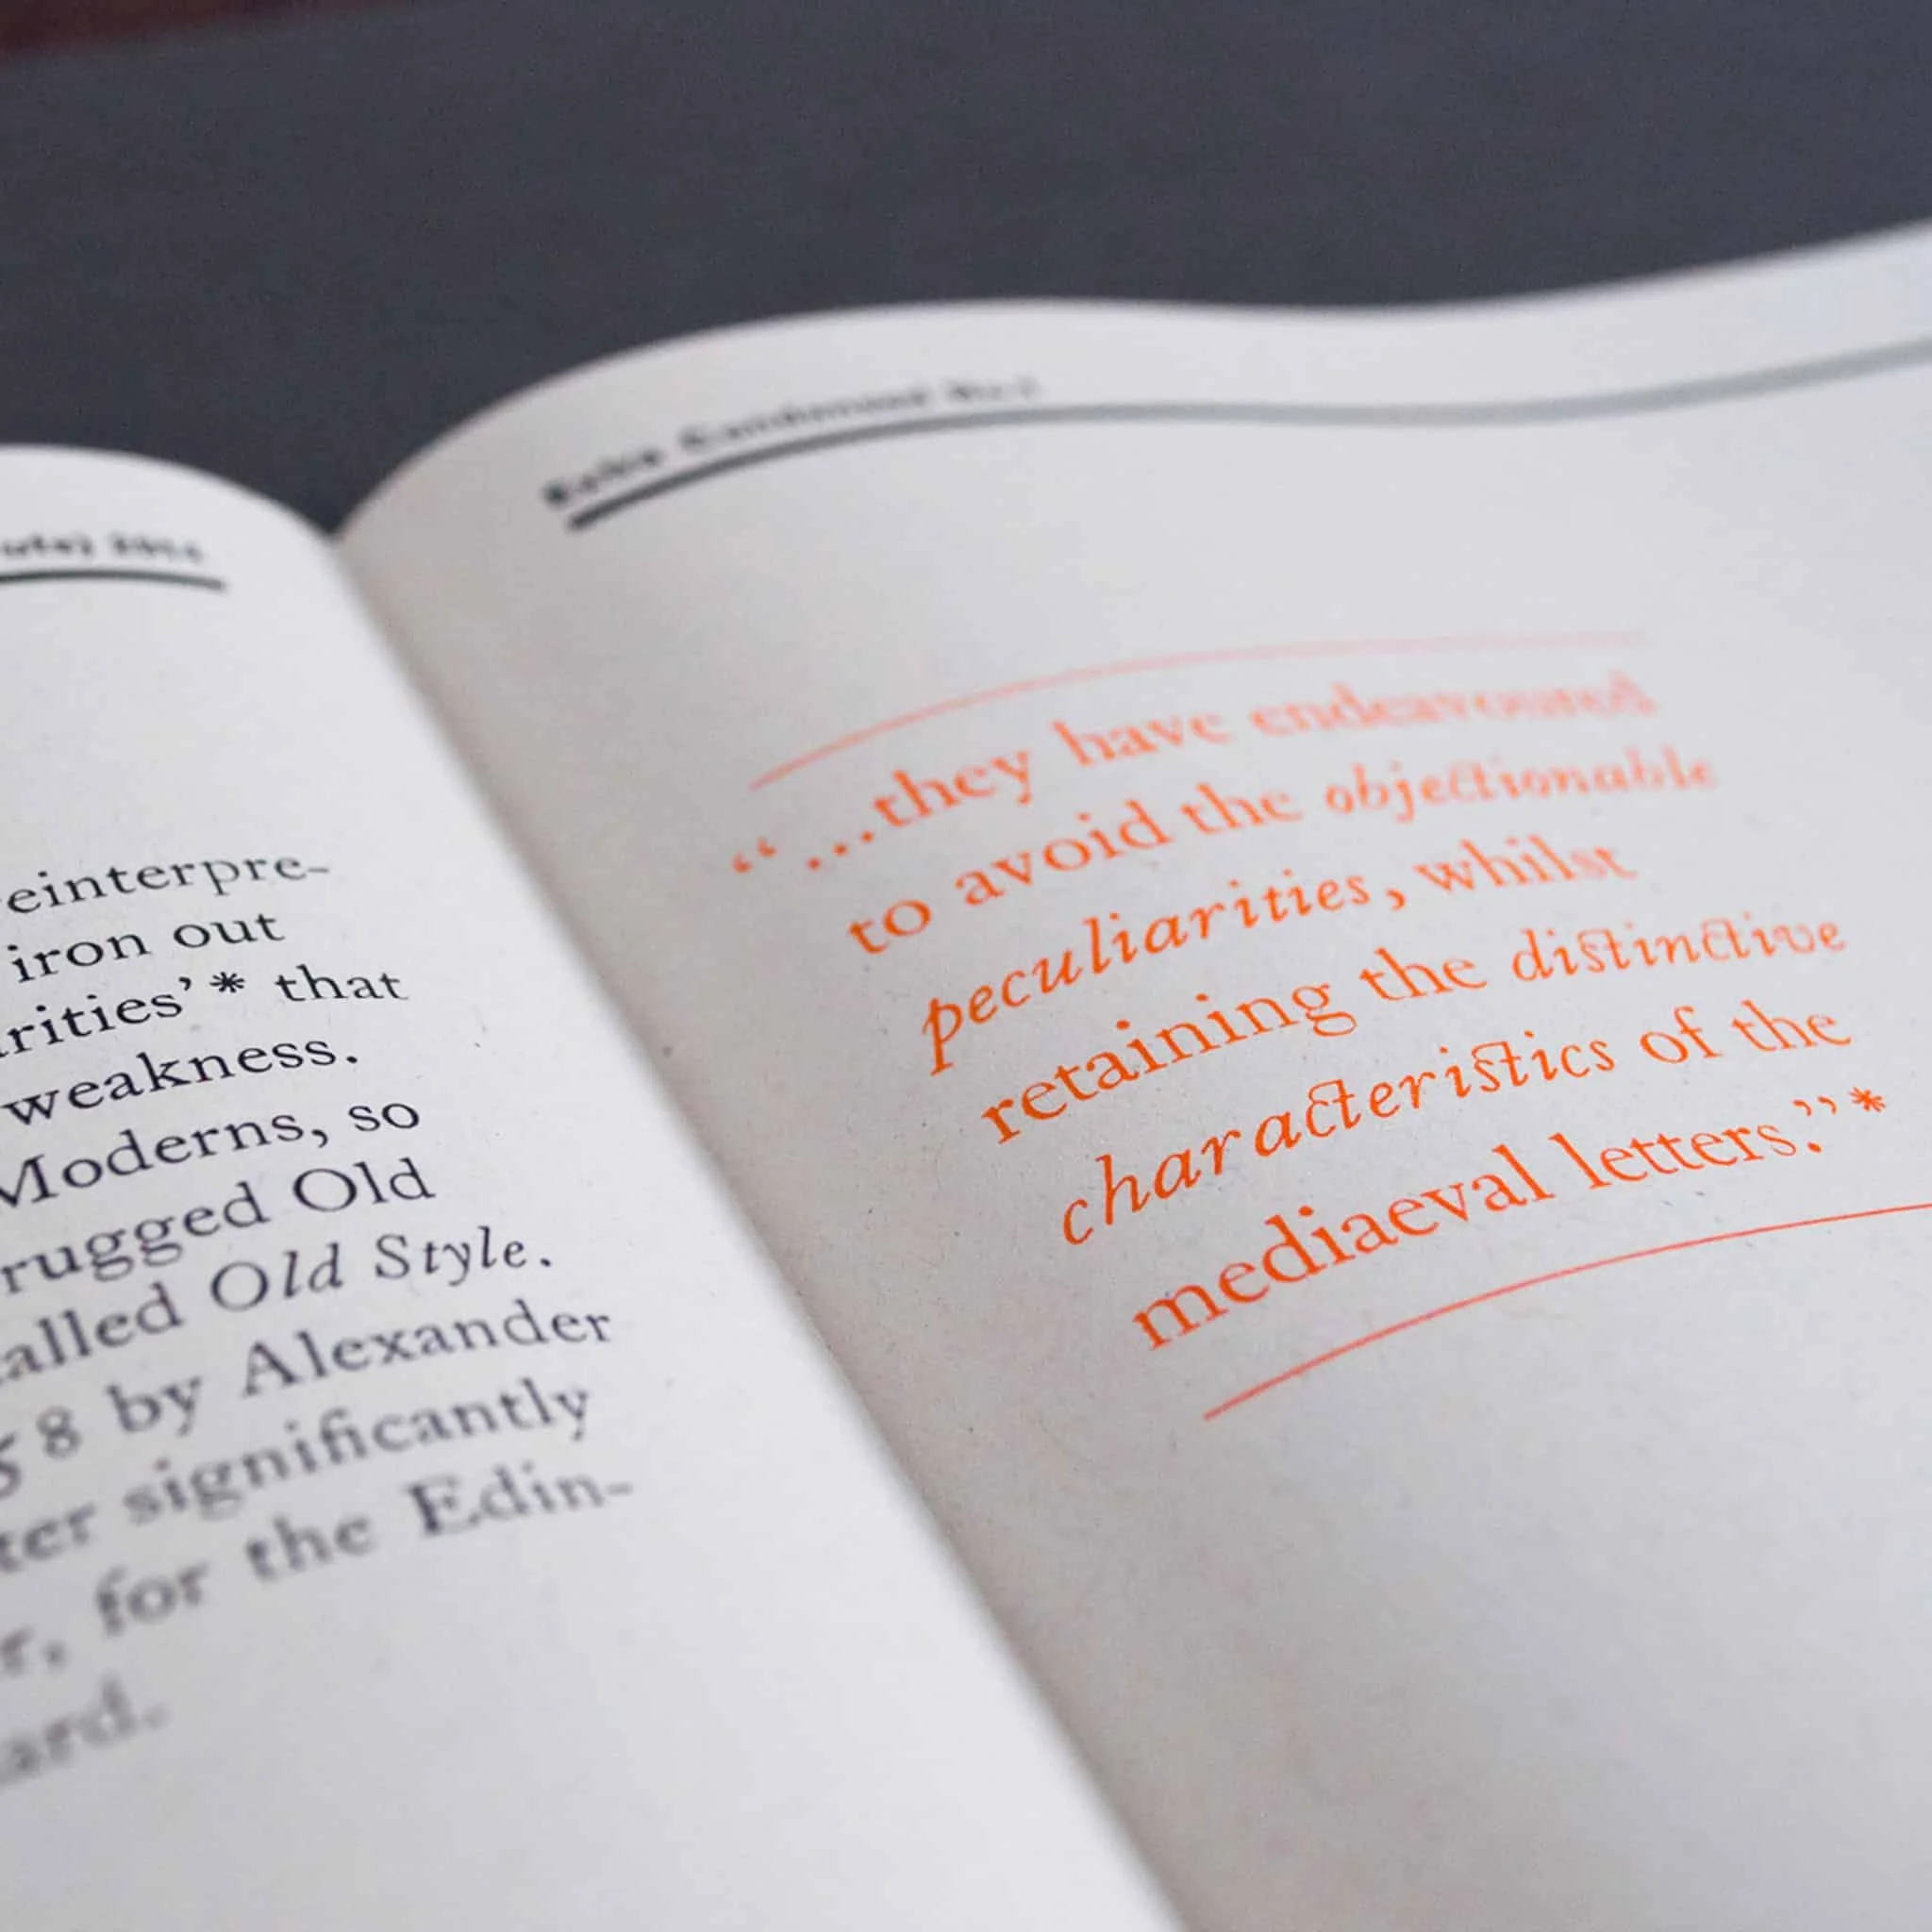 einterpre-
iron out
rities’* that
weakness.
Moderns, so
rugged Old
alled Old Style.
58 by Alexander
ter significantly
r, for the Edin-
ard.
“…they have endeavoured
to avoid the objectionable
peculiarities, whilst
retaining the distinctive
characteristics of the
mediaeval letters.”*